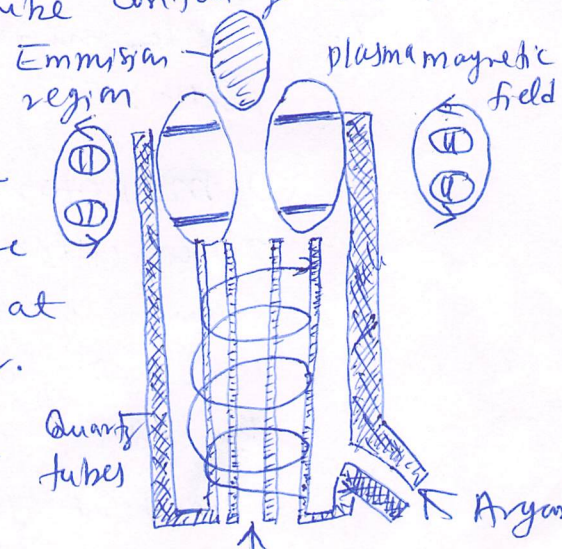 Emmision
region
plasma magnetic
field
e
at
Quartz
tubes
Argon